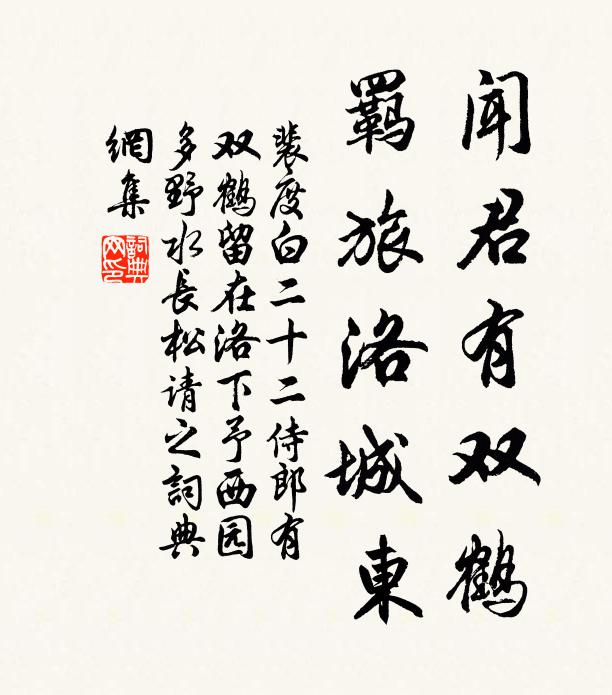 闻君有双鹤
羁旅洛城東
裴度白二十二侍郎有
双鹤留在洛下予西园
多野水長松请之詞典
網集
詞典
网印